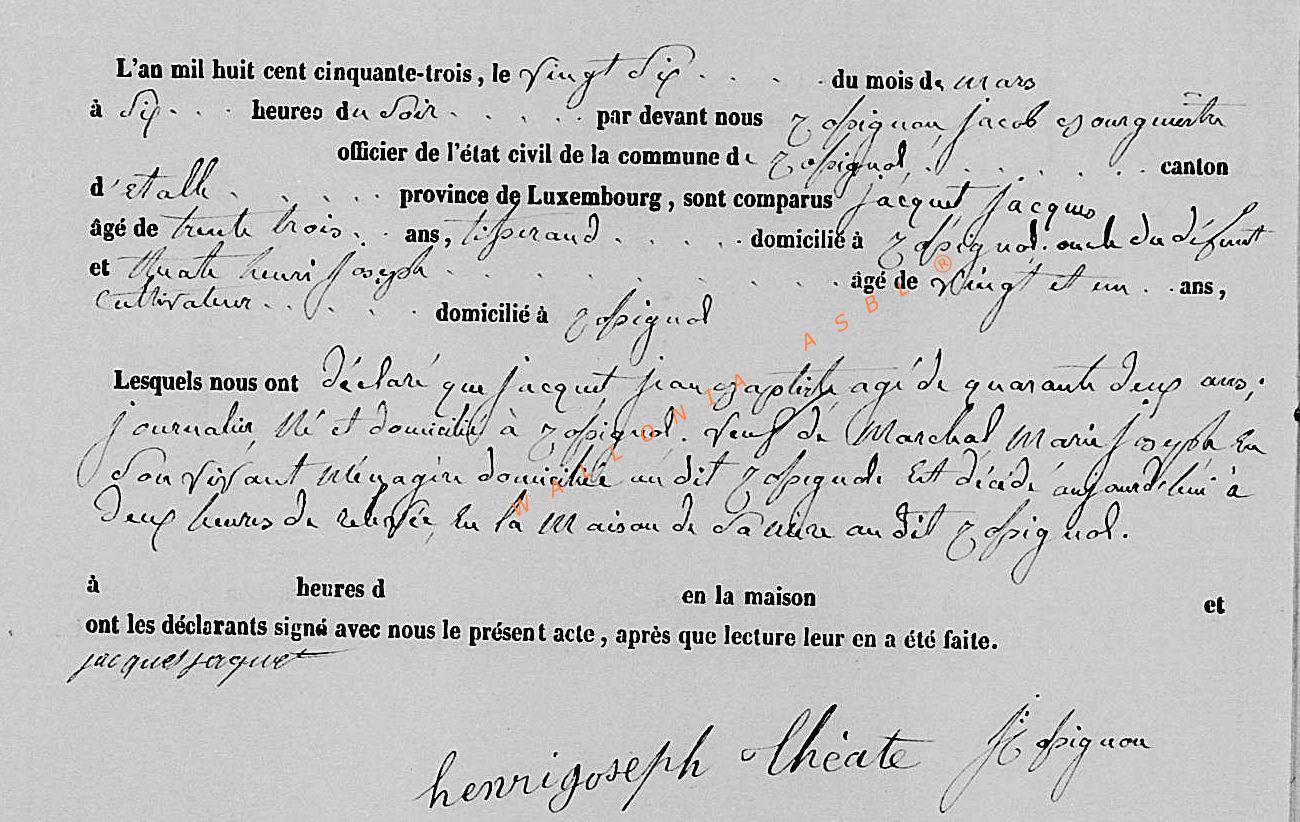 L'an mil huit cent cinquante-trois, le vingt six . . . . du mois de mars
à six . . . heures du soir . . . . . par devant nous Rossignon, Jacob Bourgmestre
officier de l'état civil de la commune de Rossignol, . . . . . . canton
d'Etalle . . . . . province de Luxembourg, sont comparus Jacquet Jacques
âgé de trente trois . . ans, tisserand . . . . . domicilié à Rossignol. oncle du défunt
et théate henri Joseph . . . . . . . . . . . âgé de vingt et un . . ans,
Cultivateur . . . . . domicilié à Rossignol
Lesquels nous ont déclaré que Jacquet Jean Baptiste agé de quarante deux ans,
journalier, Né et domicilié à Rossignol. Veuf de Marchal Marie Joseph En
Son vivant Ménagère domiciliée au dit Rossignol Est décédé aujourdhui à
Deux heures de relevée, En la Maison de Sa mère au dit Rossignol.
à heures d en la maison et
ont les déclarants signé avec nous le présent acte, après que lecture leur en a été faite.
jacques jaquet
henri joseph théate J Rossignon
WALLONIA ASBL ®